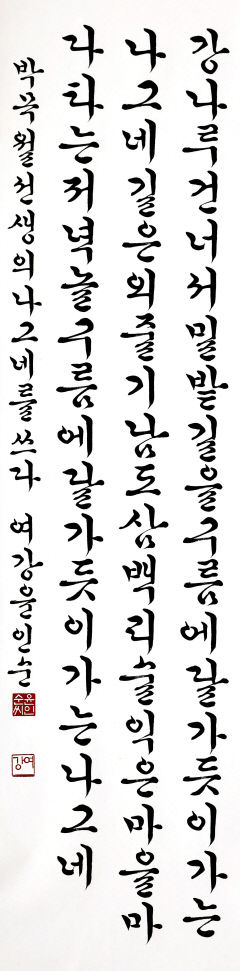 강나루건너서밀밭길을구름에달가듯이가는
나그네길은외줄기남도삼백리술익은마을마
다타는저녁놀구름에달가듯이가는나그네
박목월선생의나그네를쓰다 여강윤인순
윤인순씨
여강